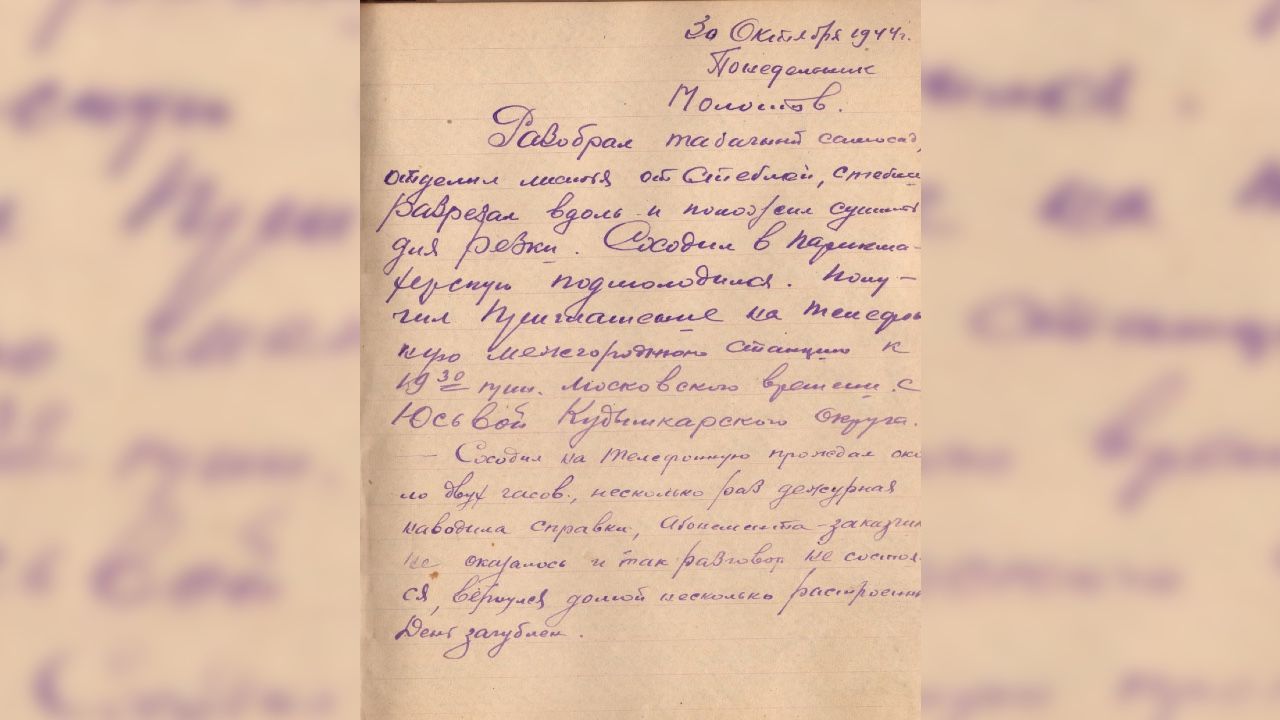 30 Октября 1944г.
Понедельник
Молотов.
Разобрал табачный самосад,
отделил листья от стеблей, стебли
разрезал вдоль и положил сушить
для резки. Сходил в парикма-
херскую подмолодился. Полу-
чил приглашение на телефон
ную межгородною станцию к
19 30 мин. Московского времени. с
Юсьвой Кудымкарского округа.
— Сходил на телефонную прождал око
ло двух часов., несколько раз дежурная
наводила справки, абонемента-заказчик
не оказалось и так разговор не состоя
ся, вернулся домой несколько расстроенн
День загублен.